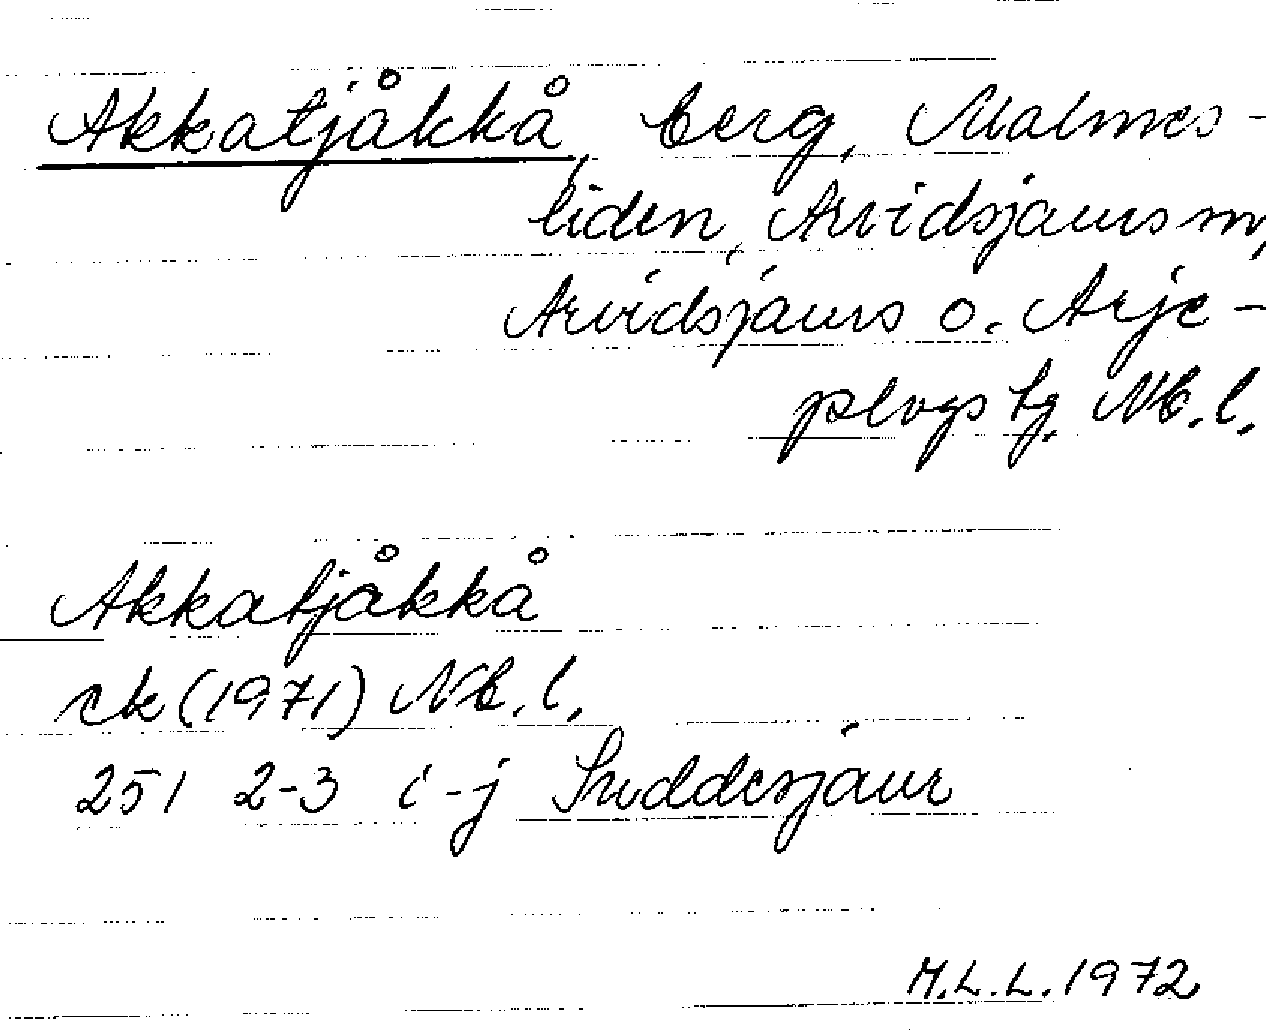 Akkatjåkkå, berg, Malmes-
liden, Arvidsjaurs sn,
Arvidsjaurs o. Arje-
plogs tg. Nb. l.
Akkatjåkkå
ek (1971) Nb. l.
251 2-3 i-j Suddesjaur
M.L.L. 1972